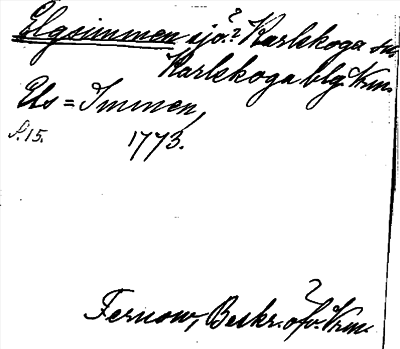 Elgsimmen sjö? Karlskoga sn
Karlskoga blg. Vrm.
Us = Immen,
S. 15. 1773.
Fernow, Beskr. öfv. Vrm.